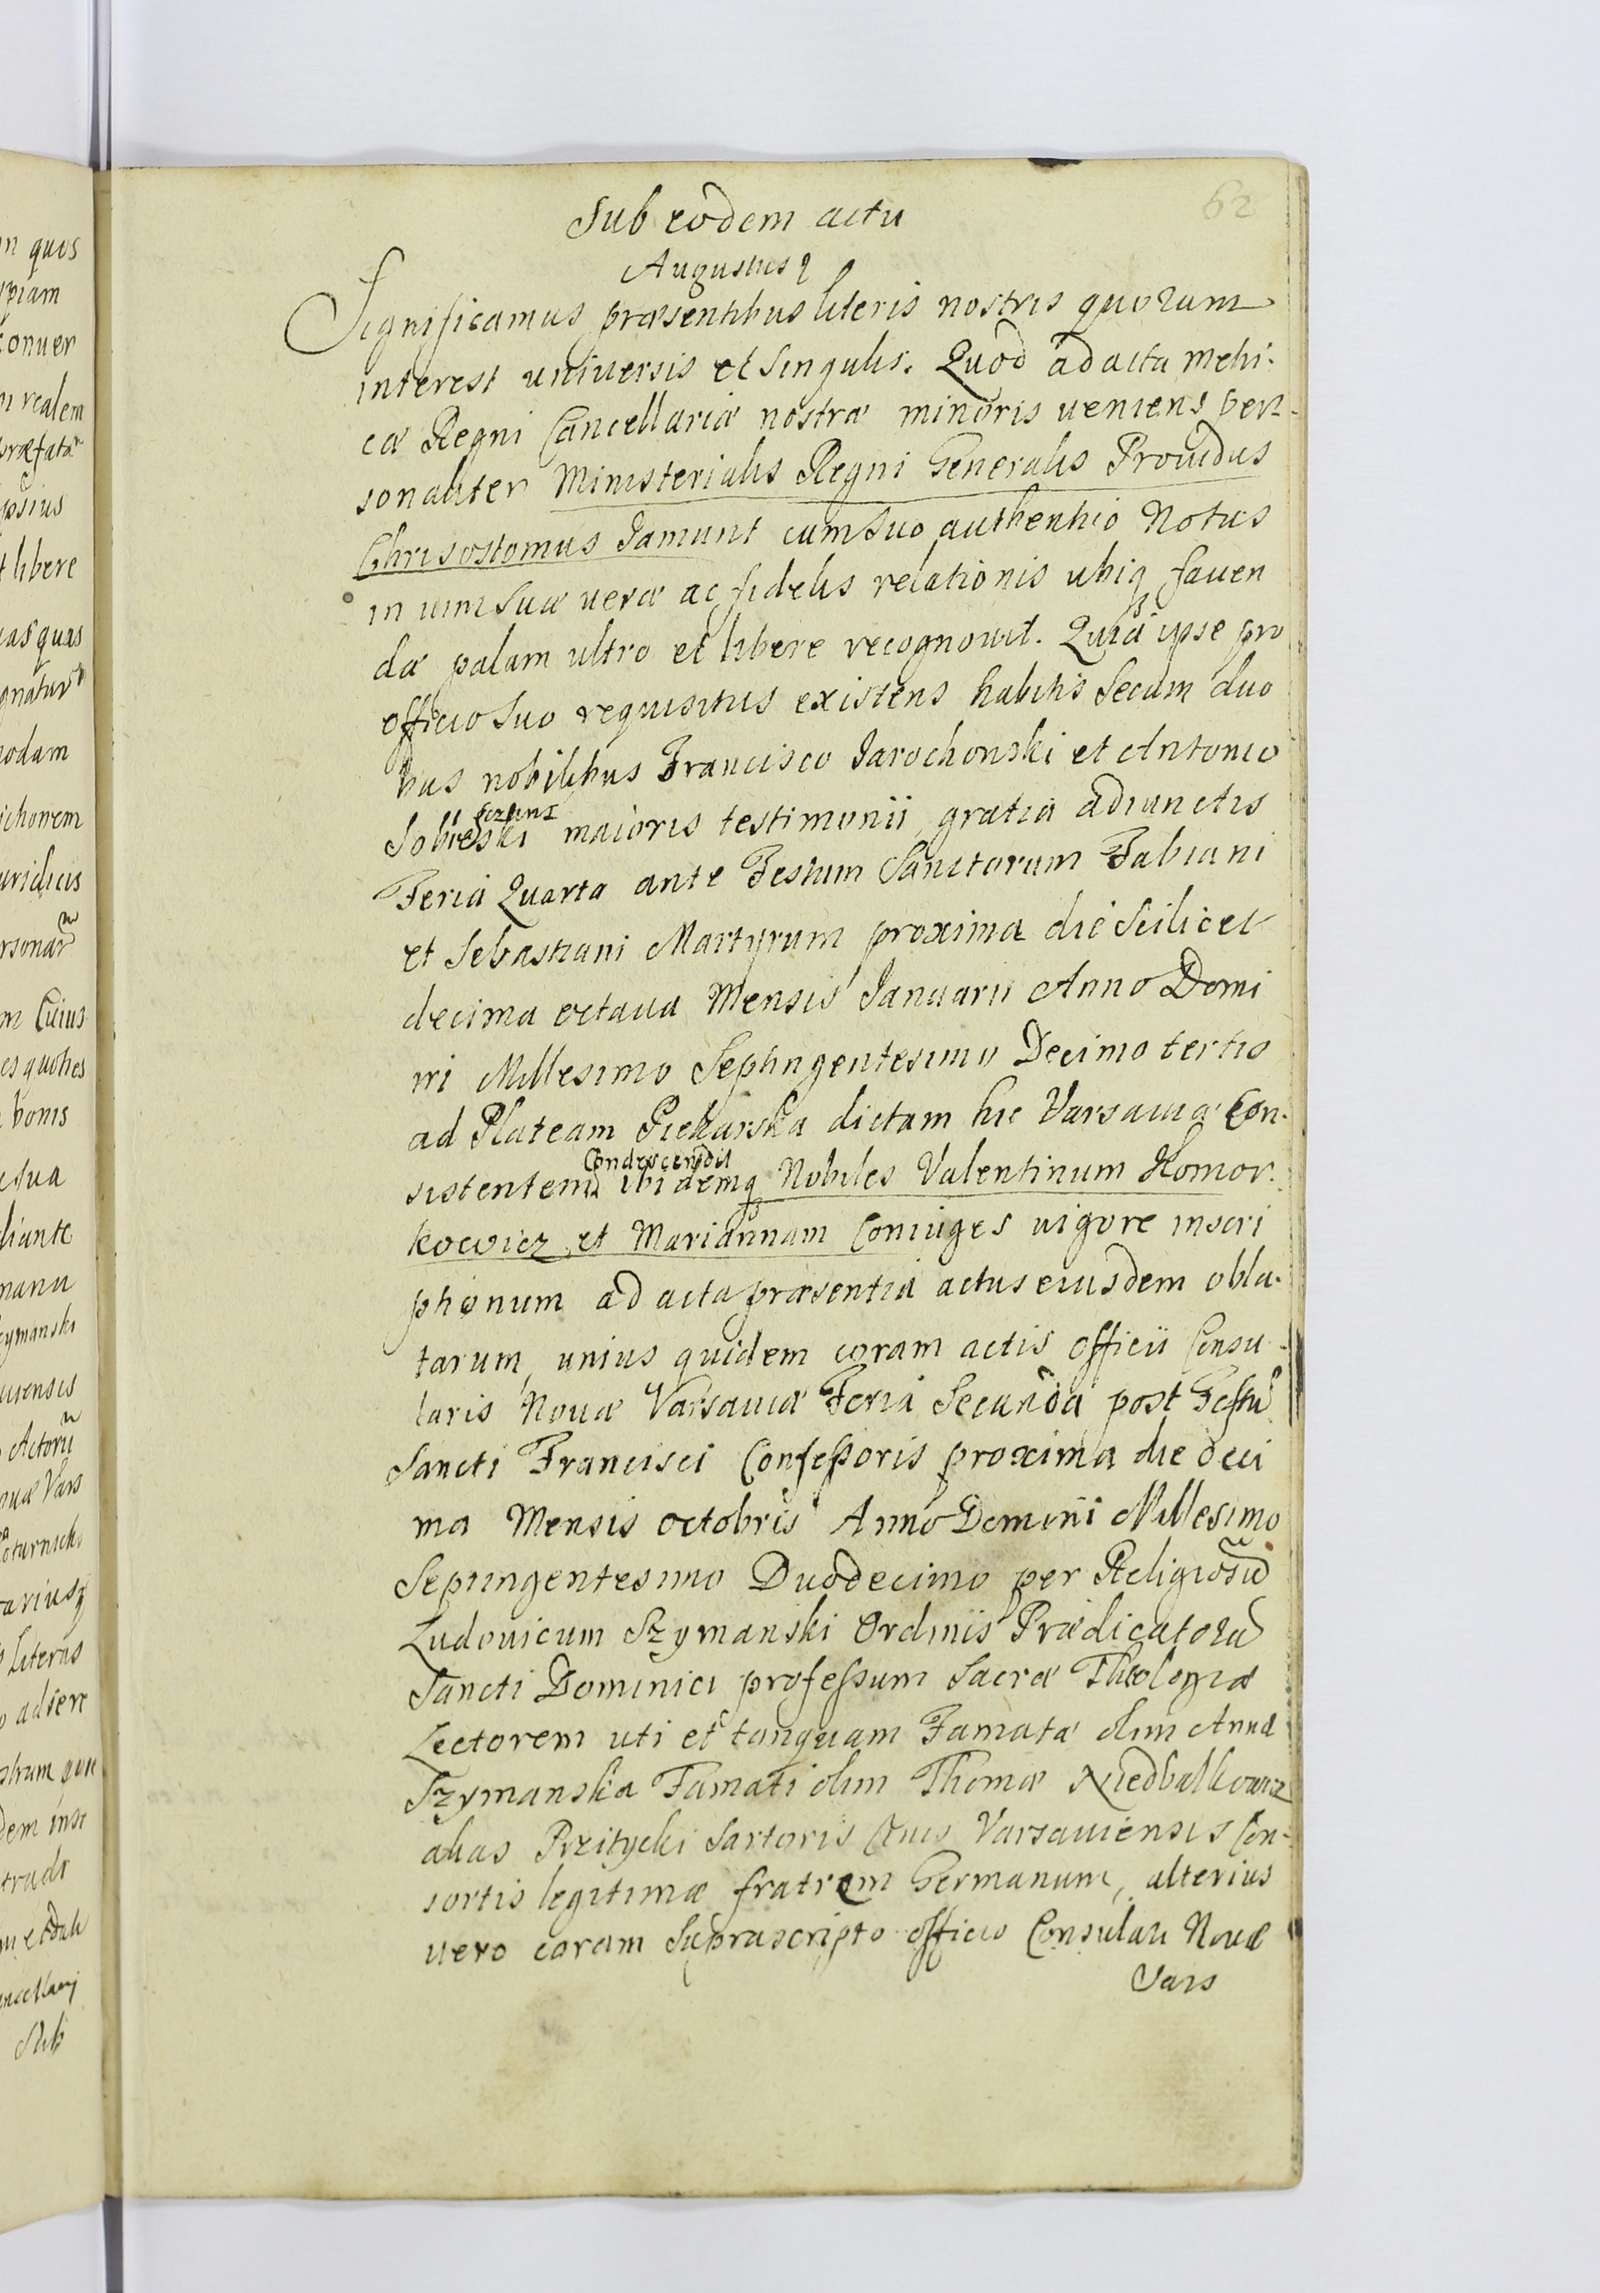 62
Sub eodem actu
Augustus
Significamus præsentibus literis nostris quorum
interest universis et singulis. Quod ad acta metri-
cæ Regni Cancellariæ nostræ minoris ueniens per-
sonaliter Ministerialis Regni Generalis Prouidus
Chrisostomus Jamunt cum suo authentico Notus
in uim suæ ueræ ac fidelis relationis ubiq fauen
dæ palam ultro et libere recognouit. Quia ipse pro
officio suo requisitus existens habitis secum duo
bus nobilibus Francisco Jarochonski et Antonio
Sobieski maioris testimonii gratia adiunctis
Feria Quarta ante Festum Sanctorum Fabiani
et Sebastiani Martyrum proxima die scilicet
decima octaua Mensis Januarii Anno Domi
ni Millesimo Septingentesimo Decimo tertio
ad Plateam Piekarska dictam hic Varsauiæ Con-
Condescendit
sistentem ibidemq Nobiles Valentinum Komor-
kowicz et Mariannam Coniuges uigore inscri
ptionum ad acta præsentia actus eiusdem obla-
tarum, unius quidem coram actis officii Consu-
laris Nouæ Varsauiæ Feria Secunda post Festu
Sancti Francisci Confessoris proxima die deci
ma Mensis octobris Anno Domini Millesimo
Septingentesimo Duodecimo per Religiosu
Ludouicum Szymanski Ordinis Prædicatoru
Sancti Dominici professum Sacræ Theologiæ
Lectorem uti et tanquam Famatæ olim Annæ
Szymanska Famati olim Thomæ Niedbalkowicz
alias Przitycki Sartoris Ciuis Varsauiensis Con-
sortis legitimæ fratrem Germanum, alterius
uero coram suprascripto officio Consulari Nouæ
Vars